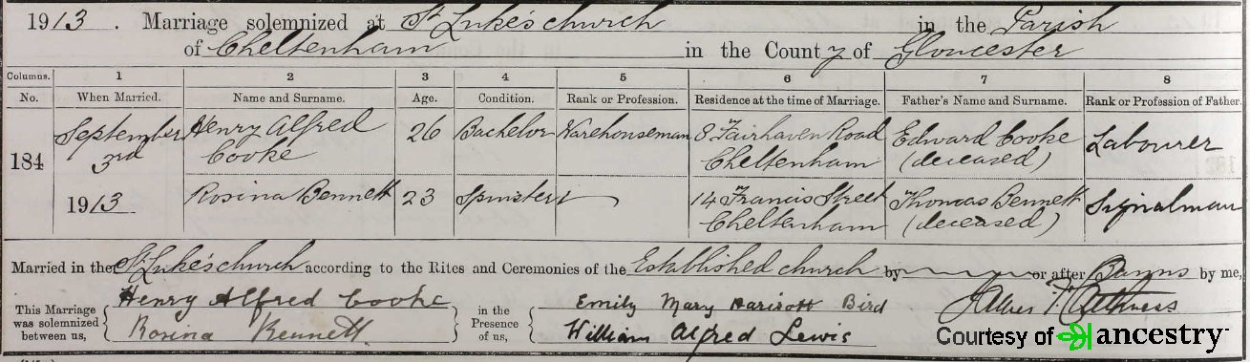 1913. Marriage solemnized at St Luke's church in the Parish
of Cheltenham in the County of Gloucester
Columns. 1 2 3 4 5 6 7 8
No. When Married. Name and Surname. Age. Condition. Rank or Profession. Residence at the time of Marriage. Father's Name and Surname. Rank or Profession of Father.
184 September 3rd 1913 Henry Alfred Cooke 26 Bachelor Warehouseman 8 Fairhaven Road Cheltenham Edward Cooke (deceased) Labourer
Rosina Bennett 23 Spinster 14 Francis Street Cheltenham Thomas Bennett (deceased) Signalman
Married in the St Luke's church according to the Rites and Ceremonies of the Established church by or after Banns by me,
This Marriage was solemnized between us, Henry Alfred Cooke Rosina Bennett in the Presence of us, Emily Mary Bird William Alfred Lewis
Courtesy of ancestry